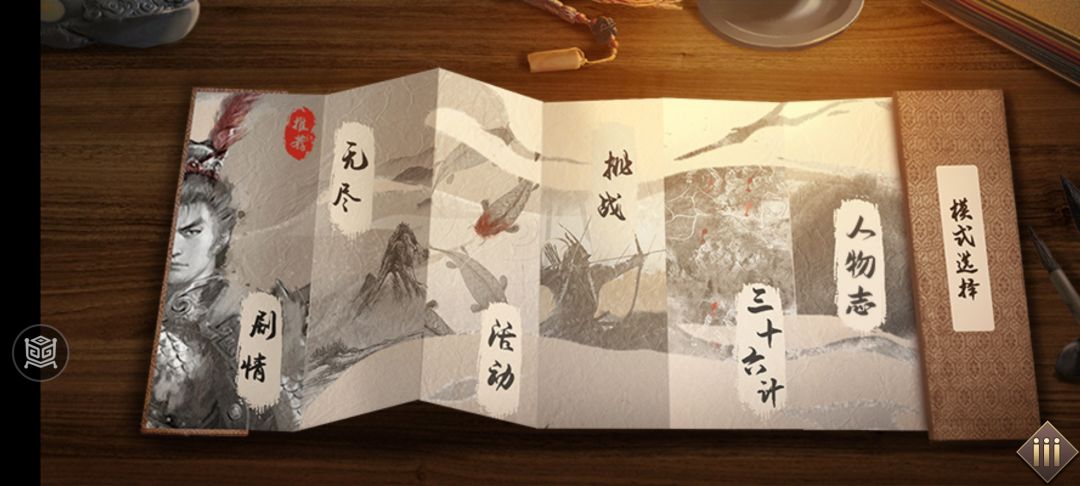 推荐
剧情
无尽
活动
挑战
三十六计
人物志
模式选择
iii